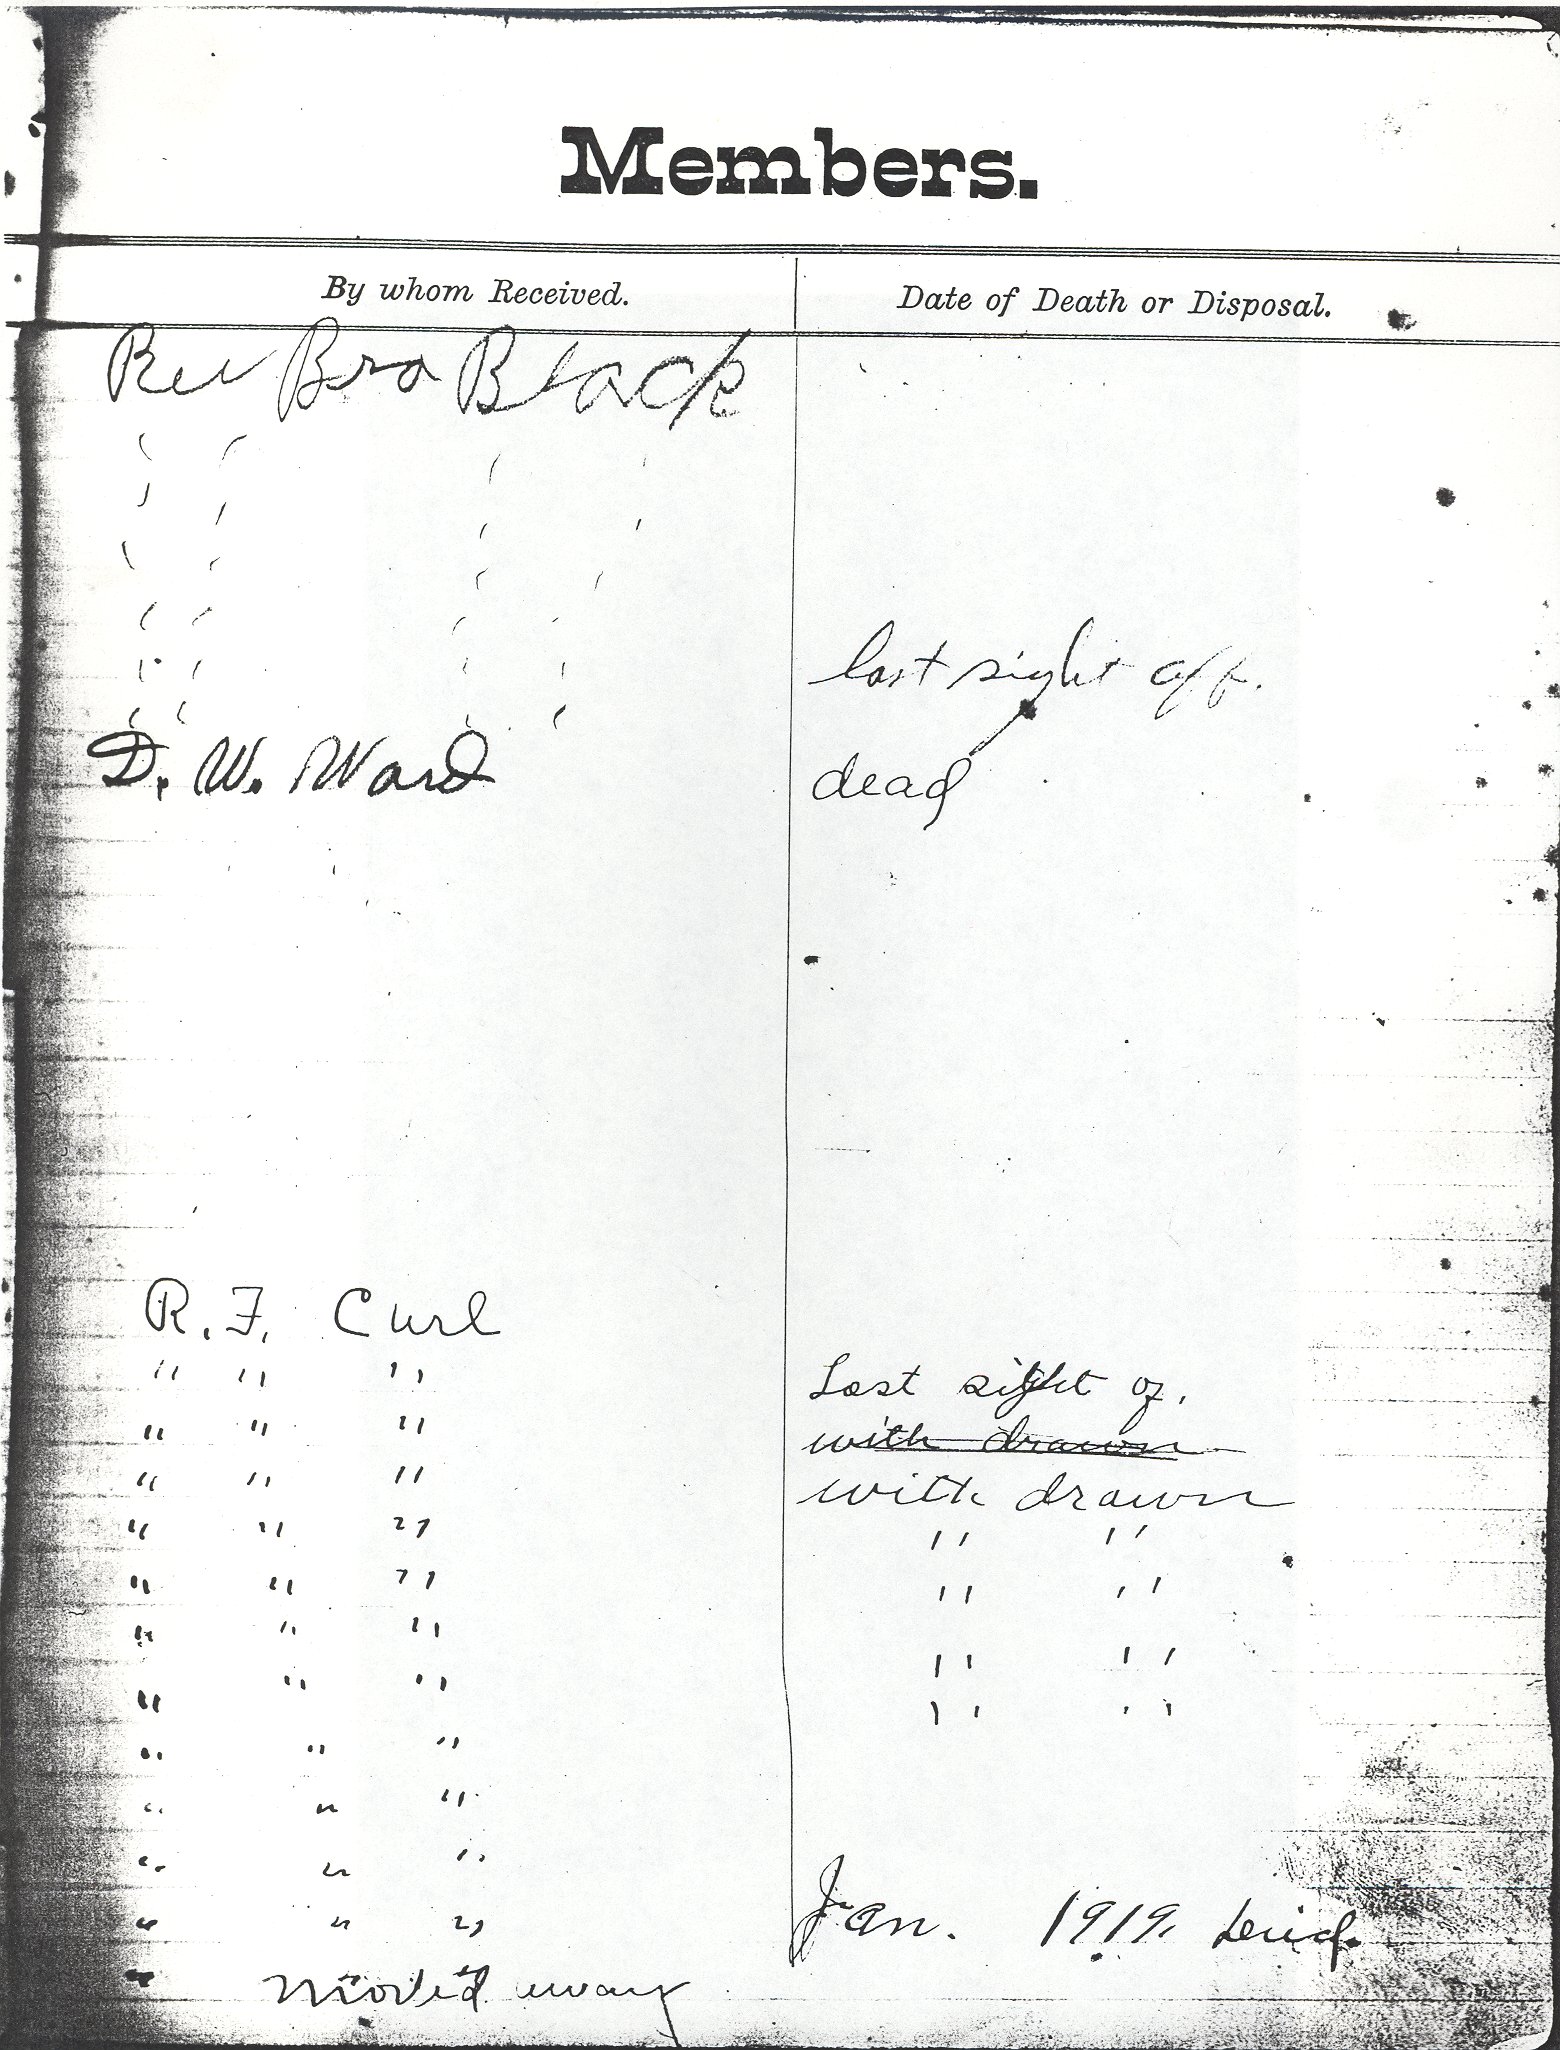 Members.
By whom Received. Date of Death or Disposal.
Rev Bro Black
" " " "
" " " "
" " " "
" " " "
" " " " lost sight off.
" " " "
D. W. Ward dead
R. F. Curl
" " " Lost sight of.
" " " with drawn
" " " with drawn
" " " " "
" " " " "
" " " " "
" " " " "
" " "
" " "
" " "
" " " Jan. 1919,
" moved away